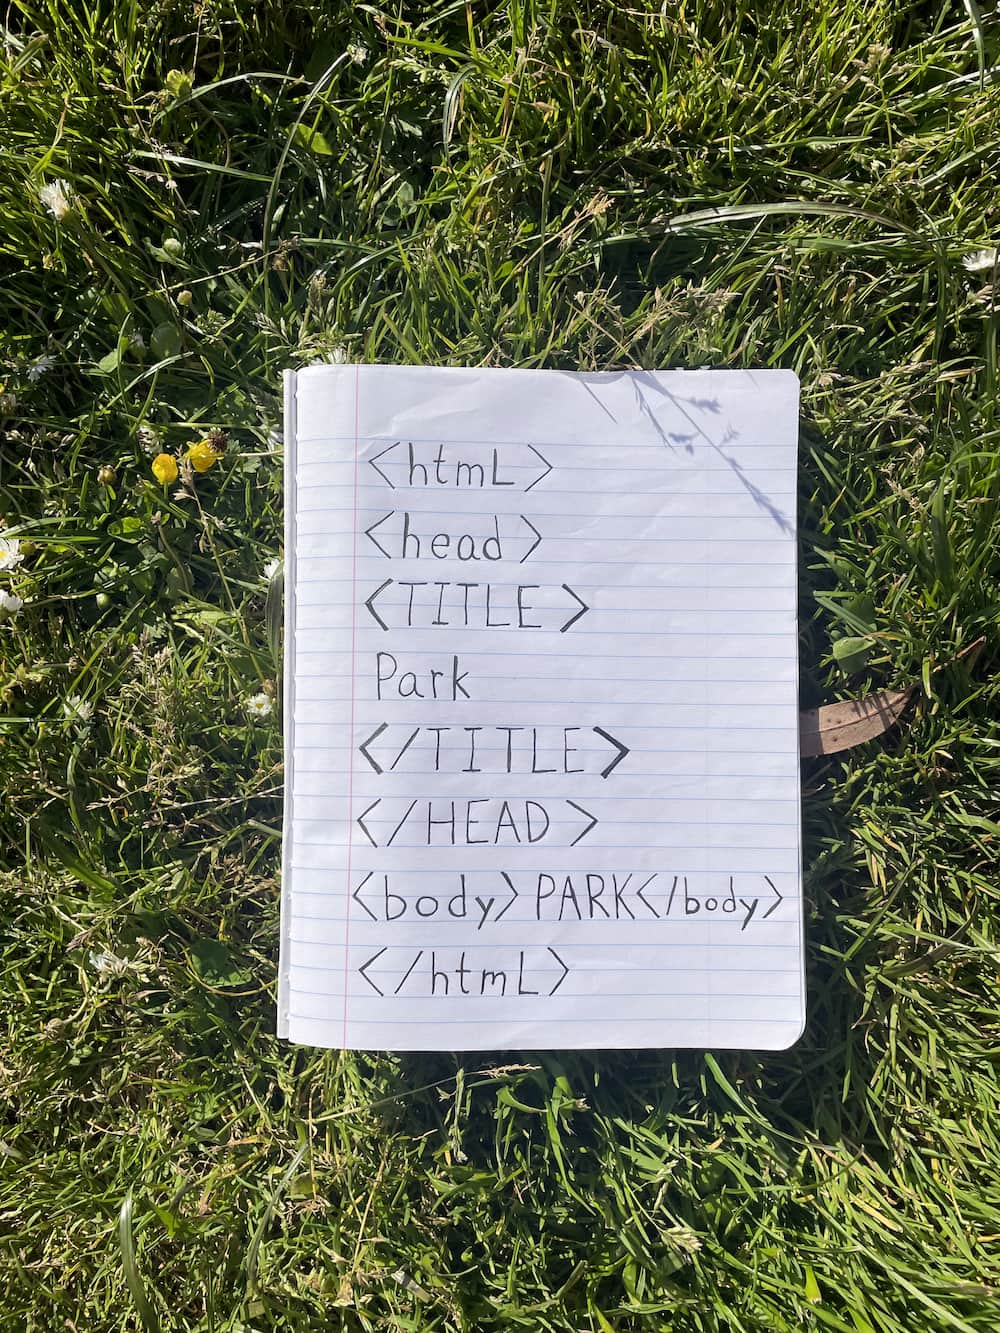 <htmL>
<head>
<TITLE>
Park
</TITLE>
</HEAD>
<body>PARK</body>
</htmL>